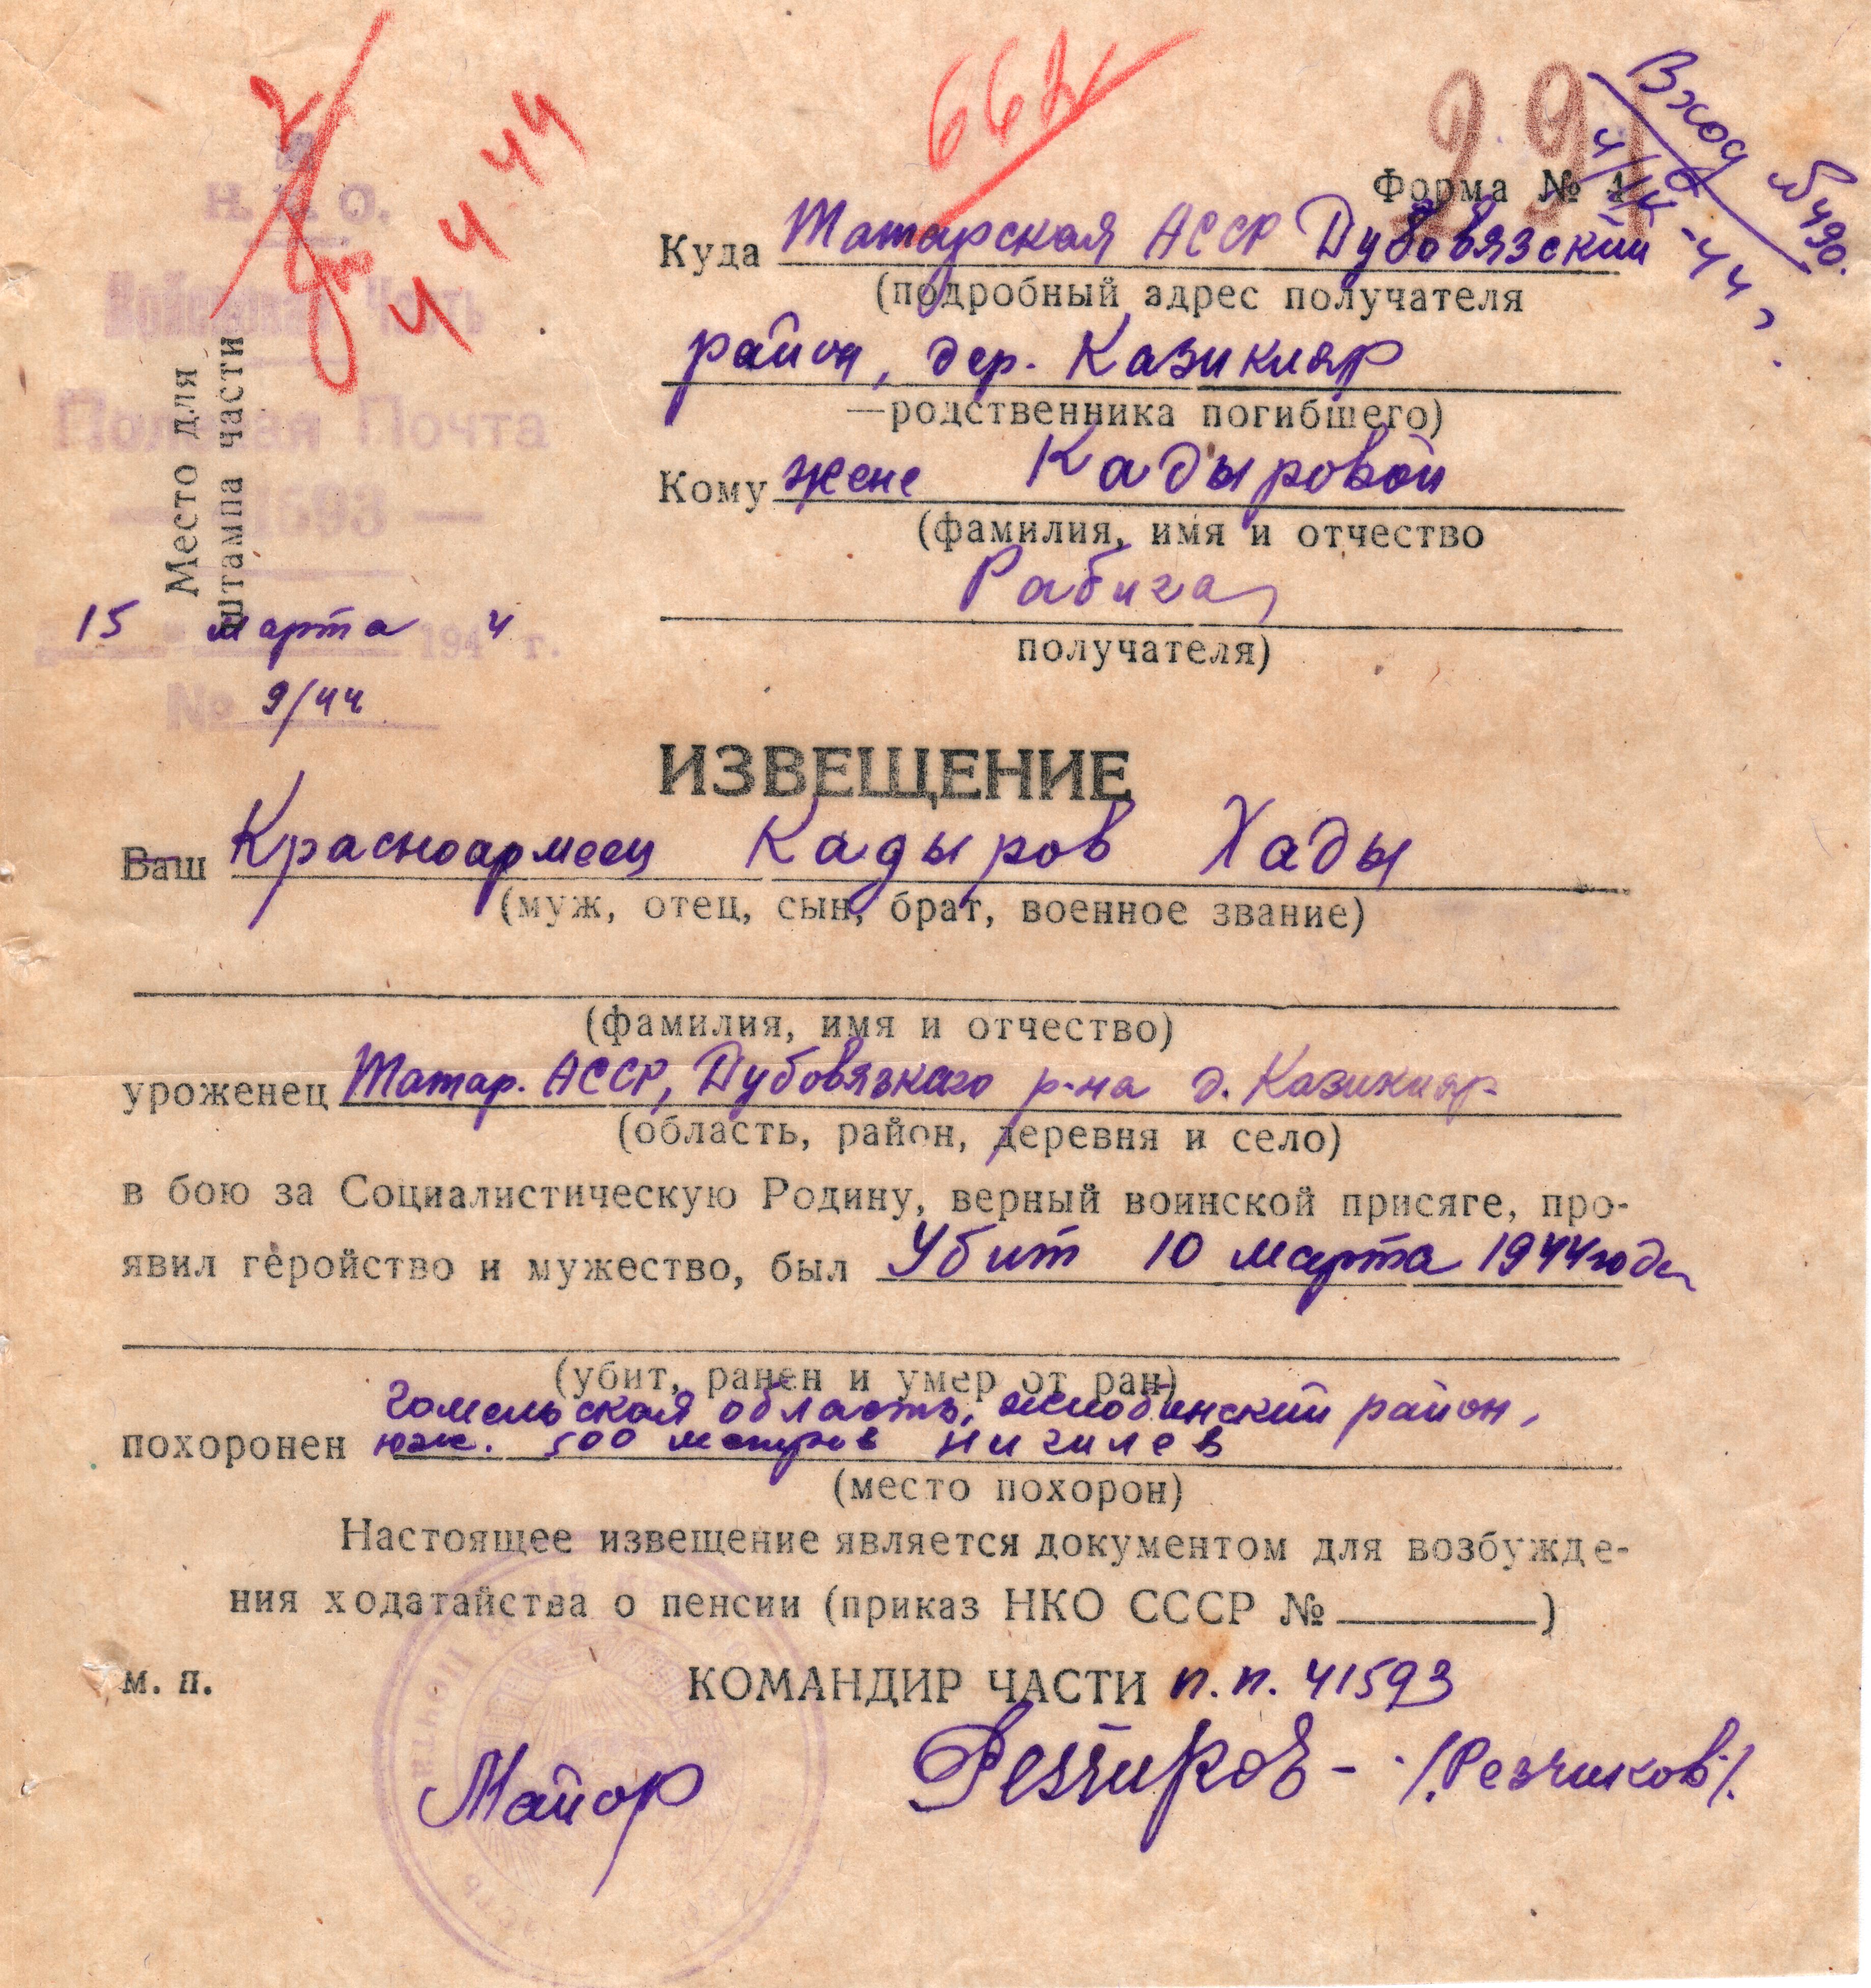 2
4 4 44
662
291
Вход №490.
4/IV-44 г.
Форма № 1
Н. К. О.
Войсковая Часть
Полевая Почта
— 41593 —
15 марта 1944 г.
№ 9/44
Место для
штампа части
Куда Татарская АССР Дубовязский
(подробный адрес получателя
район, дер. Казикляр
—родственника погибшего)
Кому жене Кадыровой
(фамилия, имя и отчество
Рабига
получателя)
ИЗВЕЩЕНИЕ
Ваш Красноармеец Кадыров Хады
(муж, отец, сын, брат, военное звание)
(фамилия, имя и отчество)
уроженец Татар. АССР, Дубовязкаго р-на д. Казикляр
(область, район, деревня и село)
в бою за Социалистическую Родину, верный воинской присяге, про-
явил геройство и мужество, был Убит 10 марта 1944 года
(убит, ранен и умер от ран)
Гомельская область, Жлобинский район,
похоронен юж. 500 метров Нигилев
(место похорон)
Настоящее извещение является документом для возбужде-
ния ходатайства о пенсии (приказ НКО СССР № ________)
м. п.
КОМАНДИР ЧАСТИ п.п. 41593
Майор Резчиков - /.Резчиков/.